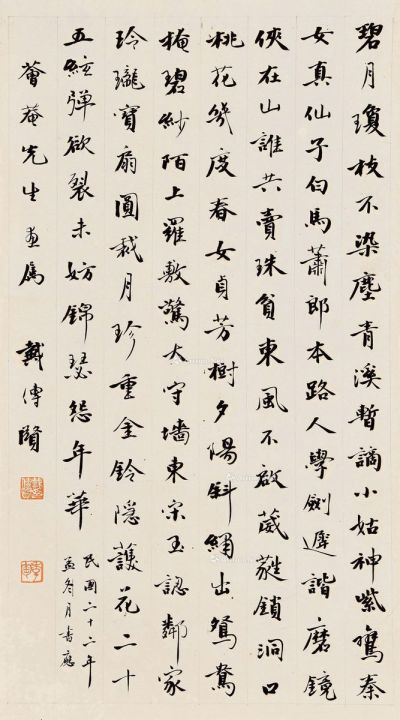 碧月瓊枝不染塵青溪暫謫小姑神紫鸞秦
女真仙子白馬蕭郎本路人學劍遲諧磨鏡
俠在山誰共賣珠貧東風不啟葳蕤鎖洞口
桃花幾度春女貞芳樹夕陽斜繡出鴛鴦
掩碧紗陌上羅敷驚大守墻東宋玉認鄰家
玲瓏寶扇圓裁月珍重金鈴隱護花二十
五絃彈欲裂未妨錦瑟怨年華
民國二十二年
孟冬月書應
薈菴先生屬
戴傳賢